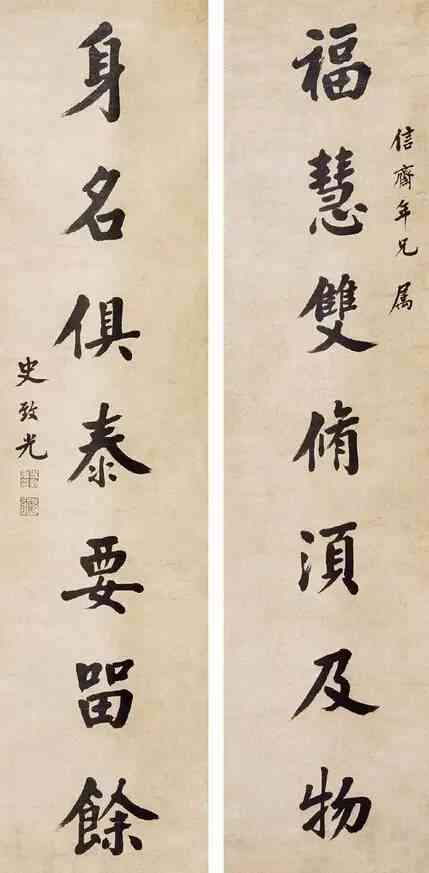 信齋年兄属
福慧雙脩湏及物
身名俱泰要畱餘
史致光